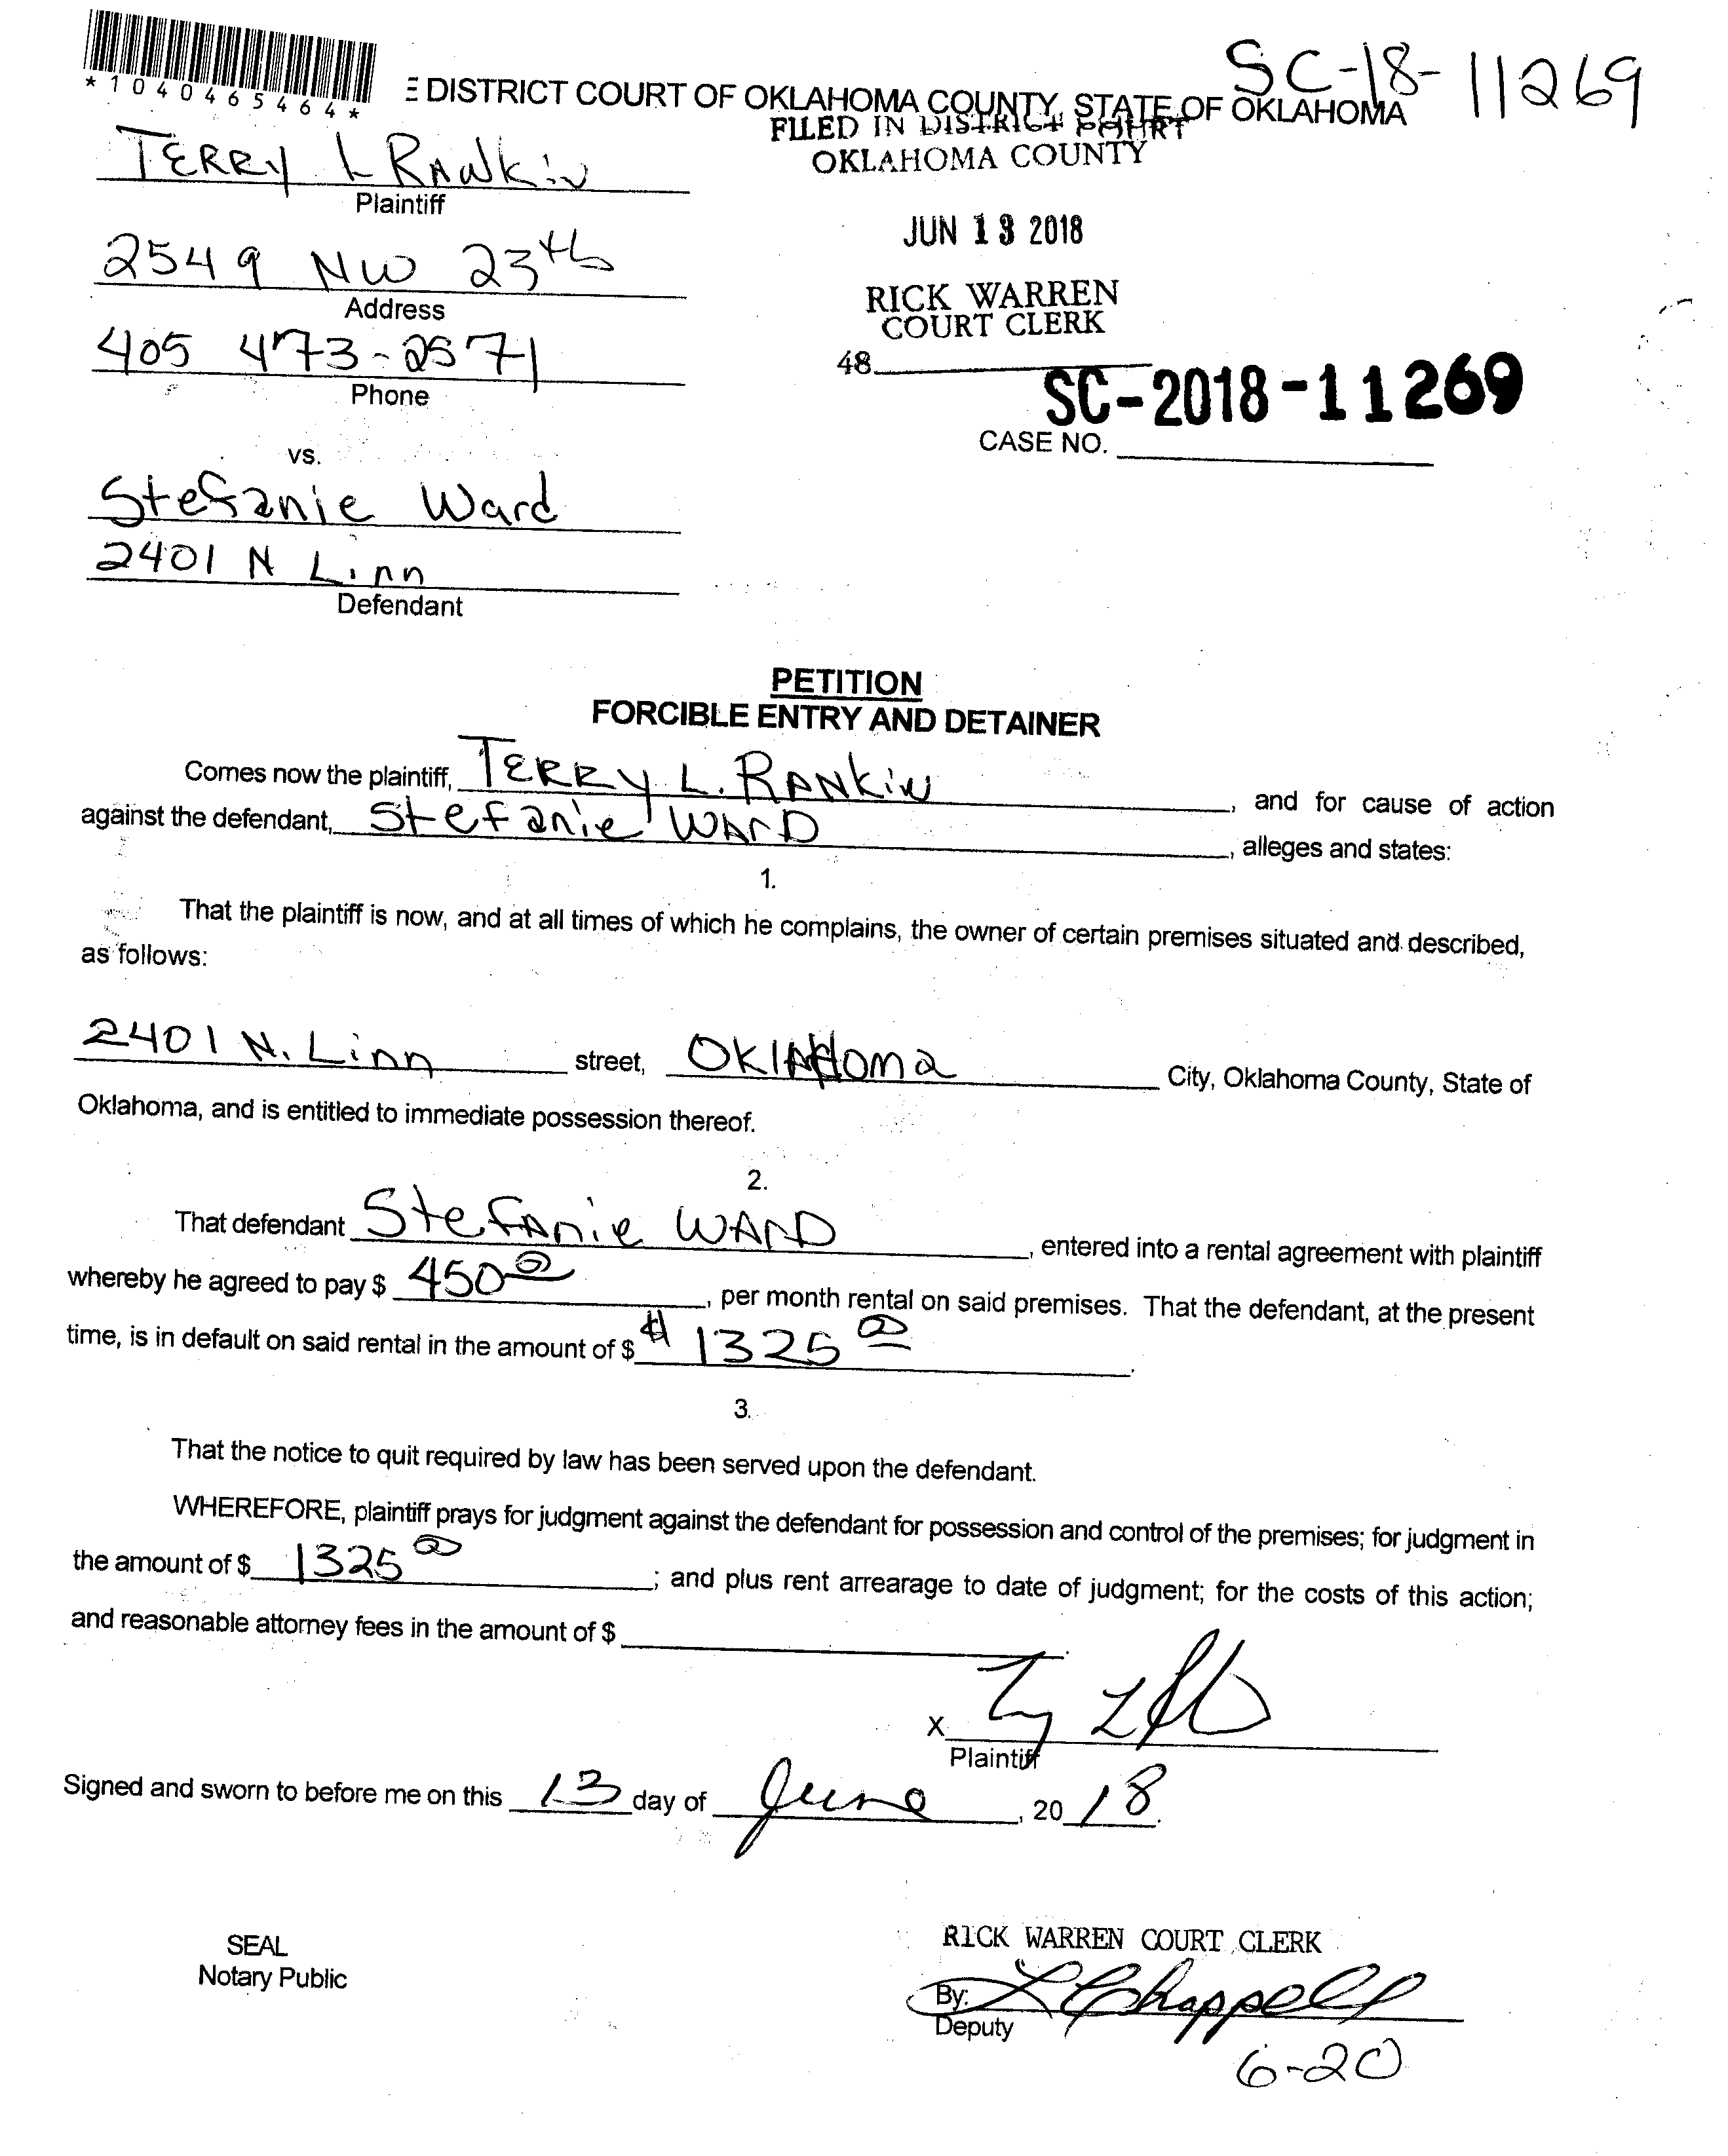 SC-18-11269
*1040465464*
E DISTRICT COURT OF OKLAHOMA COUNTY, STATE OF OKLAHOMA
FILED IN DISTRICT COURT
OKLAHOMA COUNTY
TERRY L RANKIN
Plaintiff
JUN 13 2018
2549 NW 23th
Address
RICK WARREN
COURT CLERK
405 473-2571
Phone
48
SC-2018-11269
CASE NO.
vs.
Stefanie Ward
2401 N Linn
Defendant
PETITION
FORCIBLE ENTRY AND DETAINER
Comes now the plaintiff, TERRY L. RANKIN, and for cause of action
against the defendant, Stefanie WARD, alleges and states:
1.
That the plaintiff is now, and at all times of which he complains, the owner of certain premises situated and described,
as follows:
2401 N. Linn street, OKlAHoma City, Oklahoma County, State of
Oklahoma, and is entitled to immediate possession thereof.
2.
That defendant StefAnie WARD, entered into a rental agreement with plaintiff
whereby he agreed to pay $ 450 00, per month rental on said premises. That the defendant, at the present
time, is in default on said rental in the amount of $ $ 1325 00.
3.
That the notice to quit required by law has been served upon the defendant.
WHEREFORE, plaintiff prays for judgment against the defendant for possession and control of the premises; for judgment in
the amount of $ 1325 00; and plus rent arrearage to date of judgment; for the costs of this action;
and reasonable attorney fees in the amount of $ .
X
Plaintiff
Signed and sworn to before me on this 13 day of June, 20 18.
SEAL
Notary Public
RICK WARREN COURT CLERK
By: L Chappell
Deputy
6-20